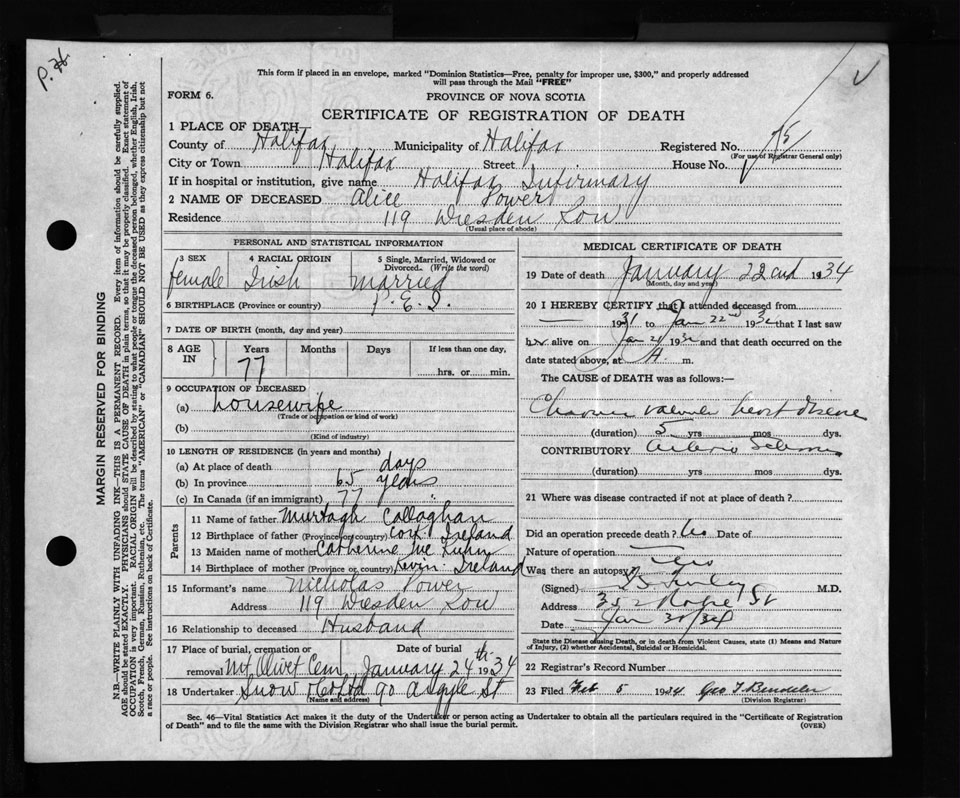 P. H.
This form if placed in an envelope, marked "Dominion Statistics—Free, penalty for improper use, $300," and properly addressed
will pass through the Mail "FREE"
FORM 6.
PROVINCE OF NOVA SCOTIA
CERTIFICATE OF REGISTRATION OF DEATH
1 PLACE OF DEATH—
County of Halifax Municipality of Halifax Registered No. 75
(For use of Registrar General only)
City or Town Halifax Street House No.
If in hospital or institution, give name Halifax Infirmary
2 NAME OF DECEASED Alice Power
Residence 119 Dresden Row
(Usual place of abode)
PERSONAL AND STATISTICAL INFORMATION
3 SEX 4 RACIAL ORIGIN 5 Single, Married, Widowed or Divorced. (Write the word)
female Irish married
6 BIRTHPLACE (Province or country) P. E. I.
7 DATE OF BIRTH (month, day and year)
8 AGE IN Years Months Days If less than one day,
77 hrs. or min.
9 OCCUPATION OF DECEASED
(a) housewife
(Trade or occupation or kind of work)
(b)
(Kind of industry)
10 LENGTH OF RESIDENCE (in years and months)
(a) At place of death days
(b) In province 65 years
(c) In Canada (if an immigrant) 77 "
Parents
11 Name of father Murtagh Callaghan
12 Birthplace of father (Province or country) Cork Ireland
13 Maiden name of mother Catherine
14 Birthplace of mother (Province or country) Ireland
15 Informant's name Nicholas Power
Address 119 Dresden Row
16 Relationship to deceased Husband
17 Place of burial, cremation or removal Mt Olivet Cem Date of burial January 24th 1934
18 Undertaker Snow & Co Ltd 90 Argyle St
(Name and address)
MEDICAL CERTIFICATE OF DEATH
19 Date of death January 22nd 1934
(Month, day and year)
20 I HEREBY CERTIFY that I attended deceased from
1931 to Jan 22nd 193 that I last saw
her alive on Jan 21 193 and that death occurred on the
date stated above, at A m.
The CAUSE of DEATH was as follows:—
heart disease
(duration) 5 yrs mos dys.
CONTRIBUTORY Arterio
(duration) yrs mos dys.
21 Where was disease contracted if not at place of death?
Did an operation precede death? No Date of
Nature of operation
Was there an autopsy?
(Signed) M.D.
Address St
Date Jan 30/34
State the Disease causing Death, or in death from Violent Causes, state (1) Means and Nature
of Injury, (2) whether Accidental, Suicidal or Homicidal.
22 Registrar's Record Number
23 Filed Feb 5 1934 Geo
(Division Registrar)
Sec. 46—Vital Statistics Act makes it the duty of the Undertaker or person acting as Undertaker to obtain all the particulars required in the "Certificate of Registration
of Death" and to file the same with the Division Registrar who shall issue the burial permit. (OVER)
MARGIN RESERVED FOR BINDING
N.B.—WRITE PLAINLY WITH UNFADING INK—THIS IS A PERMANENT RECORD. Every item of information should be carefully supplied.
AGE should be stated EXACTLY. PHYSICIANS should STATE CAUSE OF DEATH in plain terms, so that it may be properly classified. Exact statement of
OCCUPATION is very important. RACIAL ORIGIN will be described by stating to what people or tongue the deceased person belonged, whether English, Irish,
Scotch, French, German, Russian, Ruthenian, etc. The terms "AMERICAN" or "CANADIAN" SHOULD NOT BE USED as they express citizenship but not
a race or people. See instructions on back of Certificate.